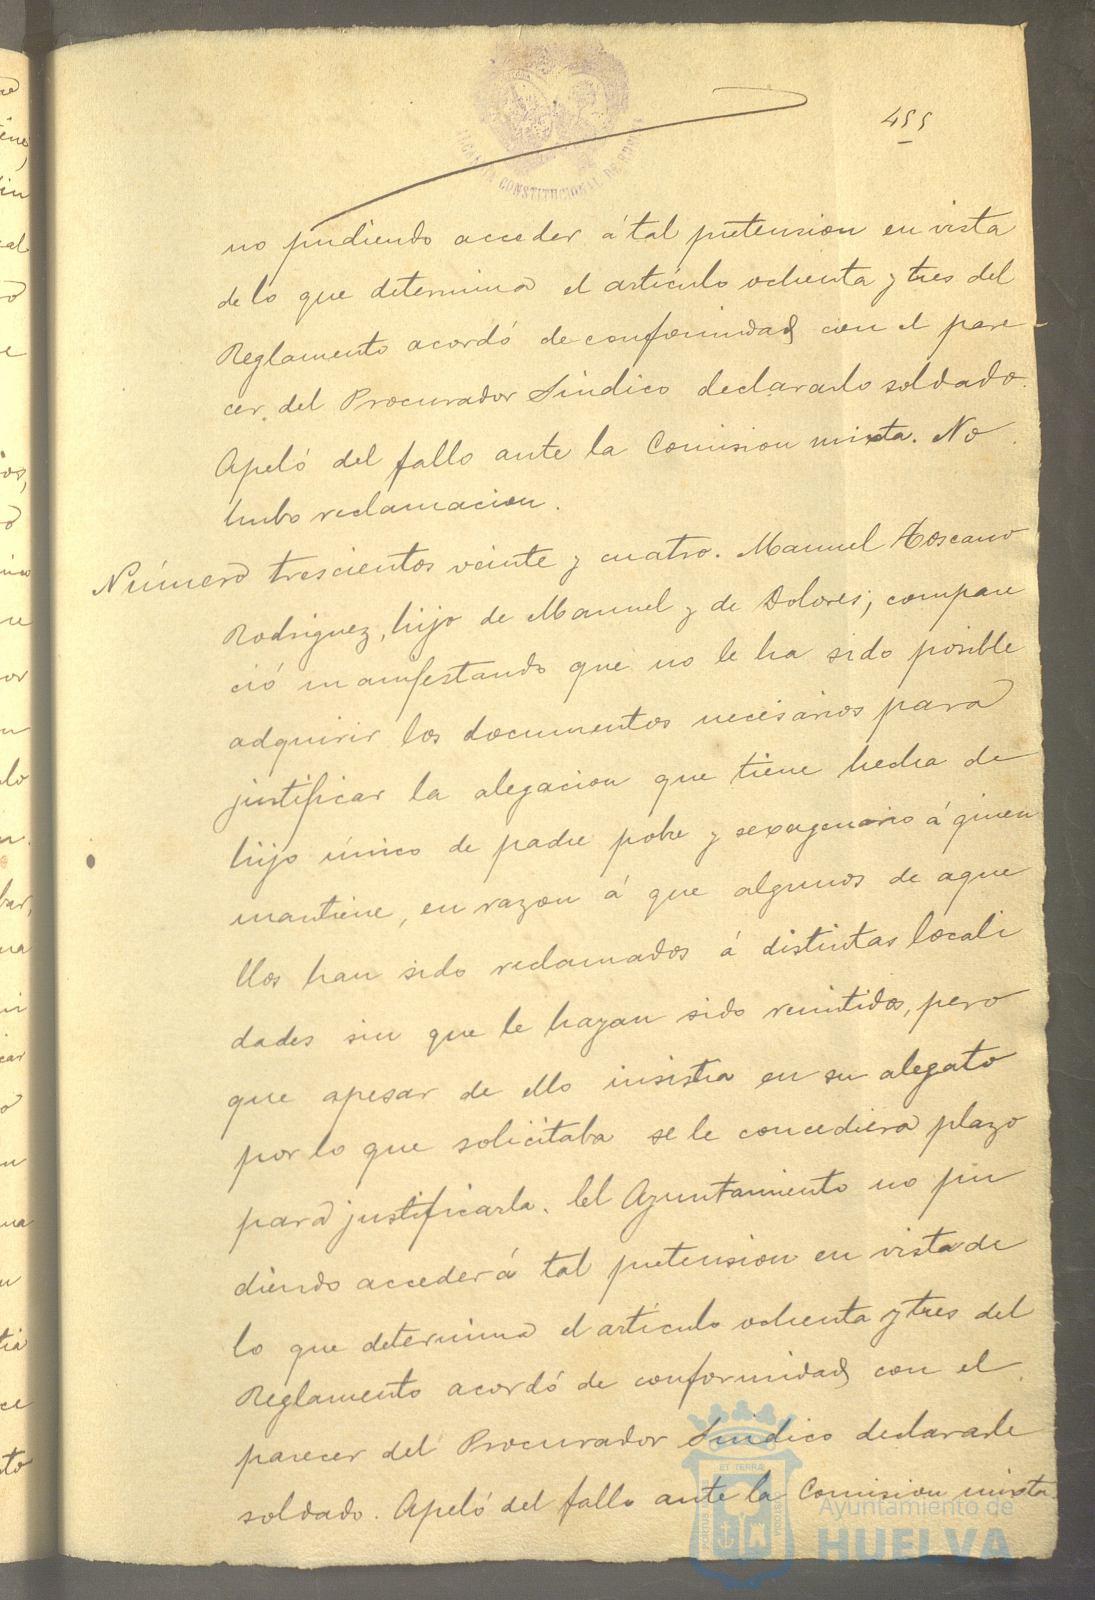 455
ALCALDIA CONSTITUCIONAL DE HUELVA
no pudiendo acceder á tal pretension en vista
de lo que determina el artículo ochenta y tres del
Reglamento acordó de conformidad con el pare-
cer del Procurador Síndico declararlo soldado.
Apeló del fallo ante la Comision mixta. No
hubo reclamacion.
Número trescientos veinte y cuatro. Manuel Toscano
Rodriguez, hijo de Manuel y de Dolores; compare
ció manifestando que no le ha sido posible
adquirir los documentos necesarios para
justificar la alegacion que tiene hecha de
hijo único de padre pobre y sexagenario á quien
mantiene, en razon á que algunos de aque
llos han sido reclamados á distintas locali
dades sin que le hayan sido remitidos, pero
que apesar de ello insistia en su alegato
por lo que solicitaba se le concediera plazo
para justificarla. El Ayuntamiento no pu
diendo acceder á tal pretension en vista de
lo que determina el artículo ochenta y tres del
Reglamento acordó de conformidad con el
parecer del Procurador Síndico declararle
soldado. Apeló del fallo ante la Comision mixta.
ET TERRÆ
PORTUS MARIS
CUSTODIA
Ayuntamiento de
HUELVA